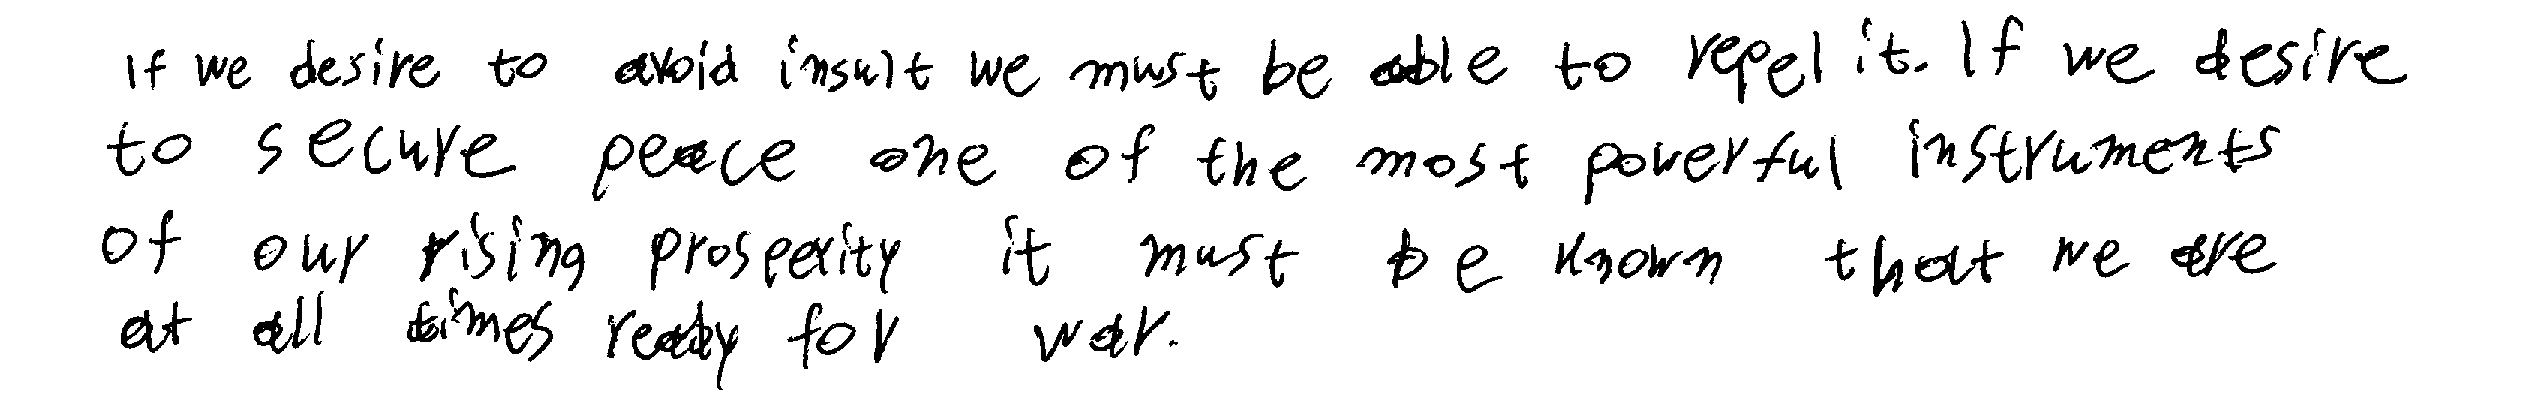 If we desire to avoid insult we must be able to repel it. If we desire
to secure peace one of the most powerful instruments
of our rising prosperity it must be known that we are
at all times ready for war.